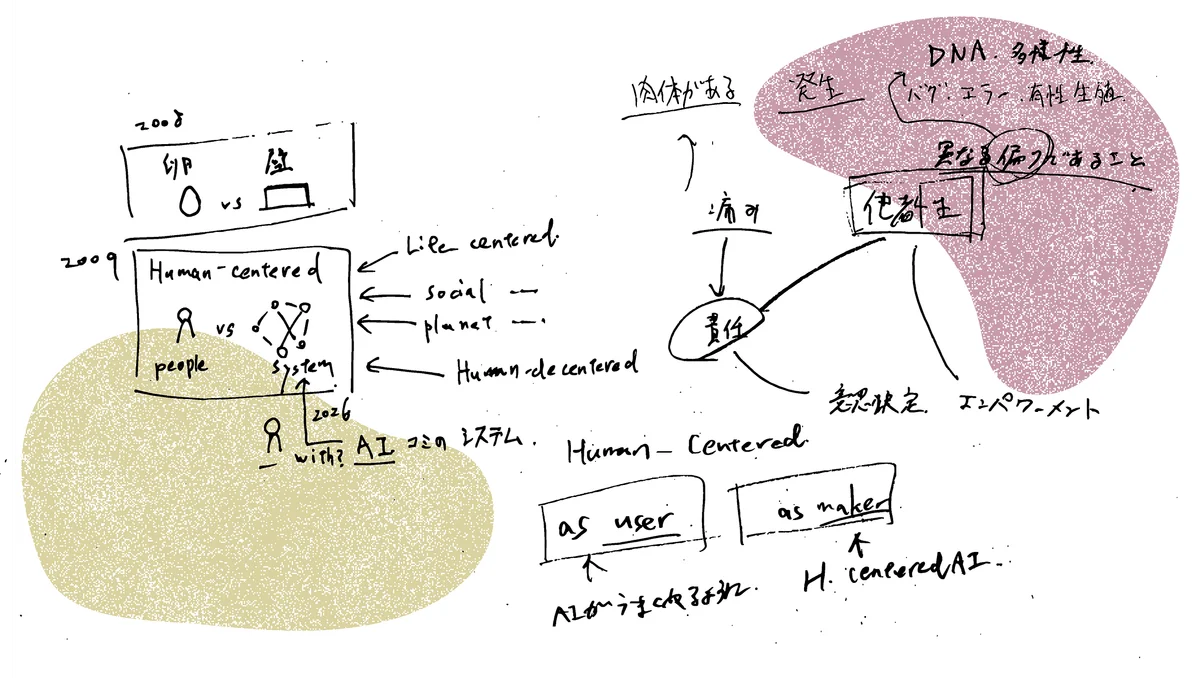 2008
卵 壁
vs
2009
Human-centered
vs
people
system
Life centered.
social ―
planet ―.
Human-decentered
2026
with? AI コミの システム.
肉体がある
発生
DNA. 多様性.
バグ: エラー. 有性生殖
異なる偏りであること
他者性
痛み
責任
意思決定.
エンパワーメント
Human-Centered.
as user
as maker
H. centered AI.